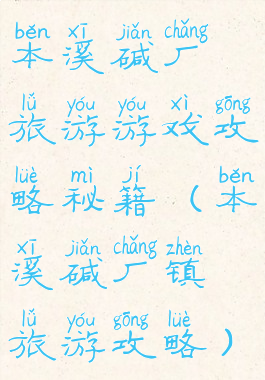 běn xī jiǎn chǎng
本溪碱厂
lǚ yóu yóu xì gōng
旅游游戏攻
lüè mì jí běn
略秘籍(本
xī jiǎn chǎng zhèn
溪碱厂镇
lǚ yóu gōng lüè
旅游攻略)